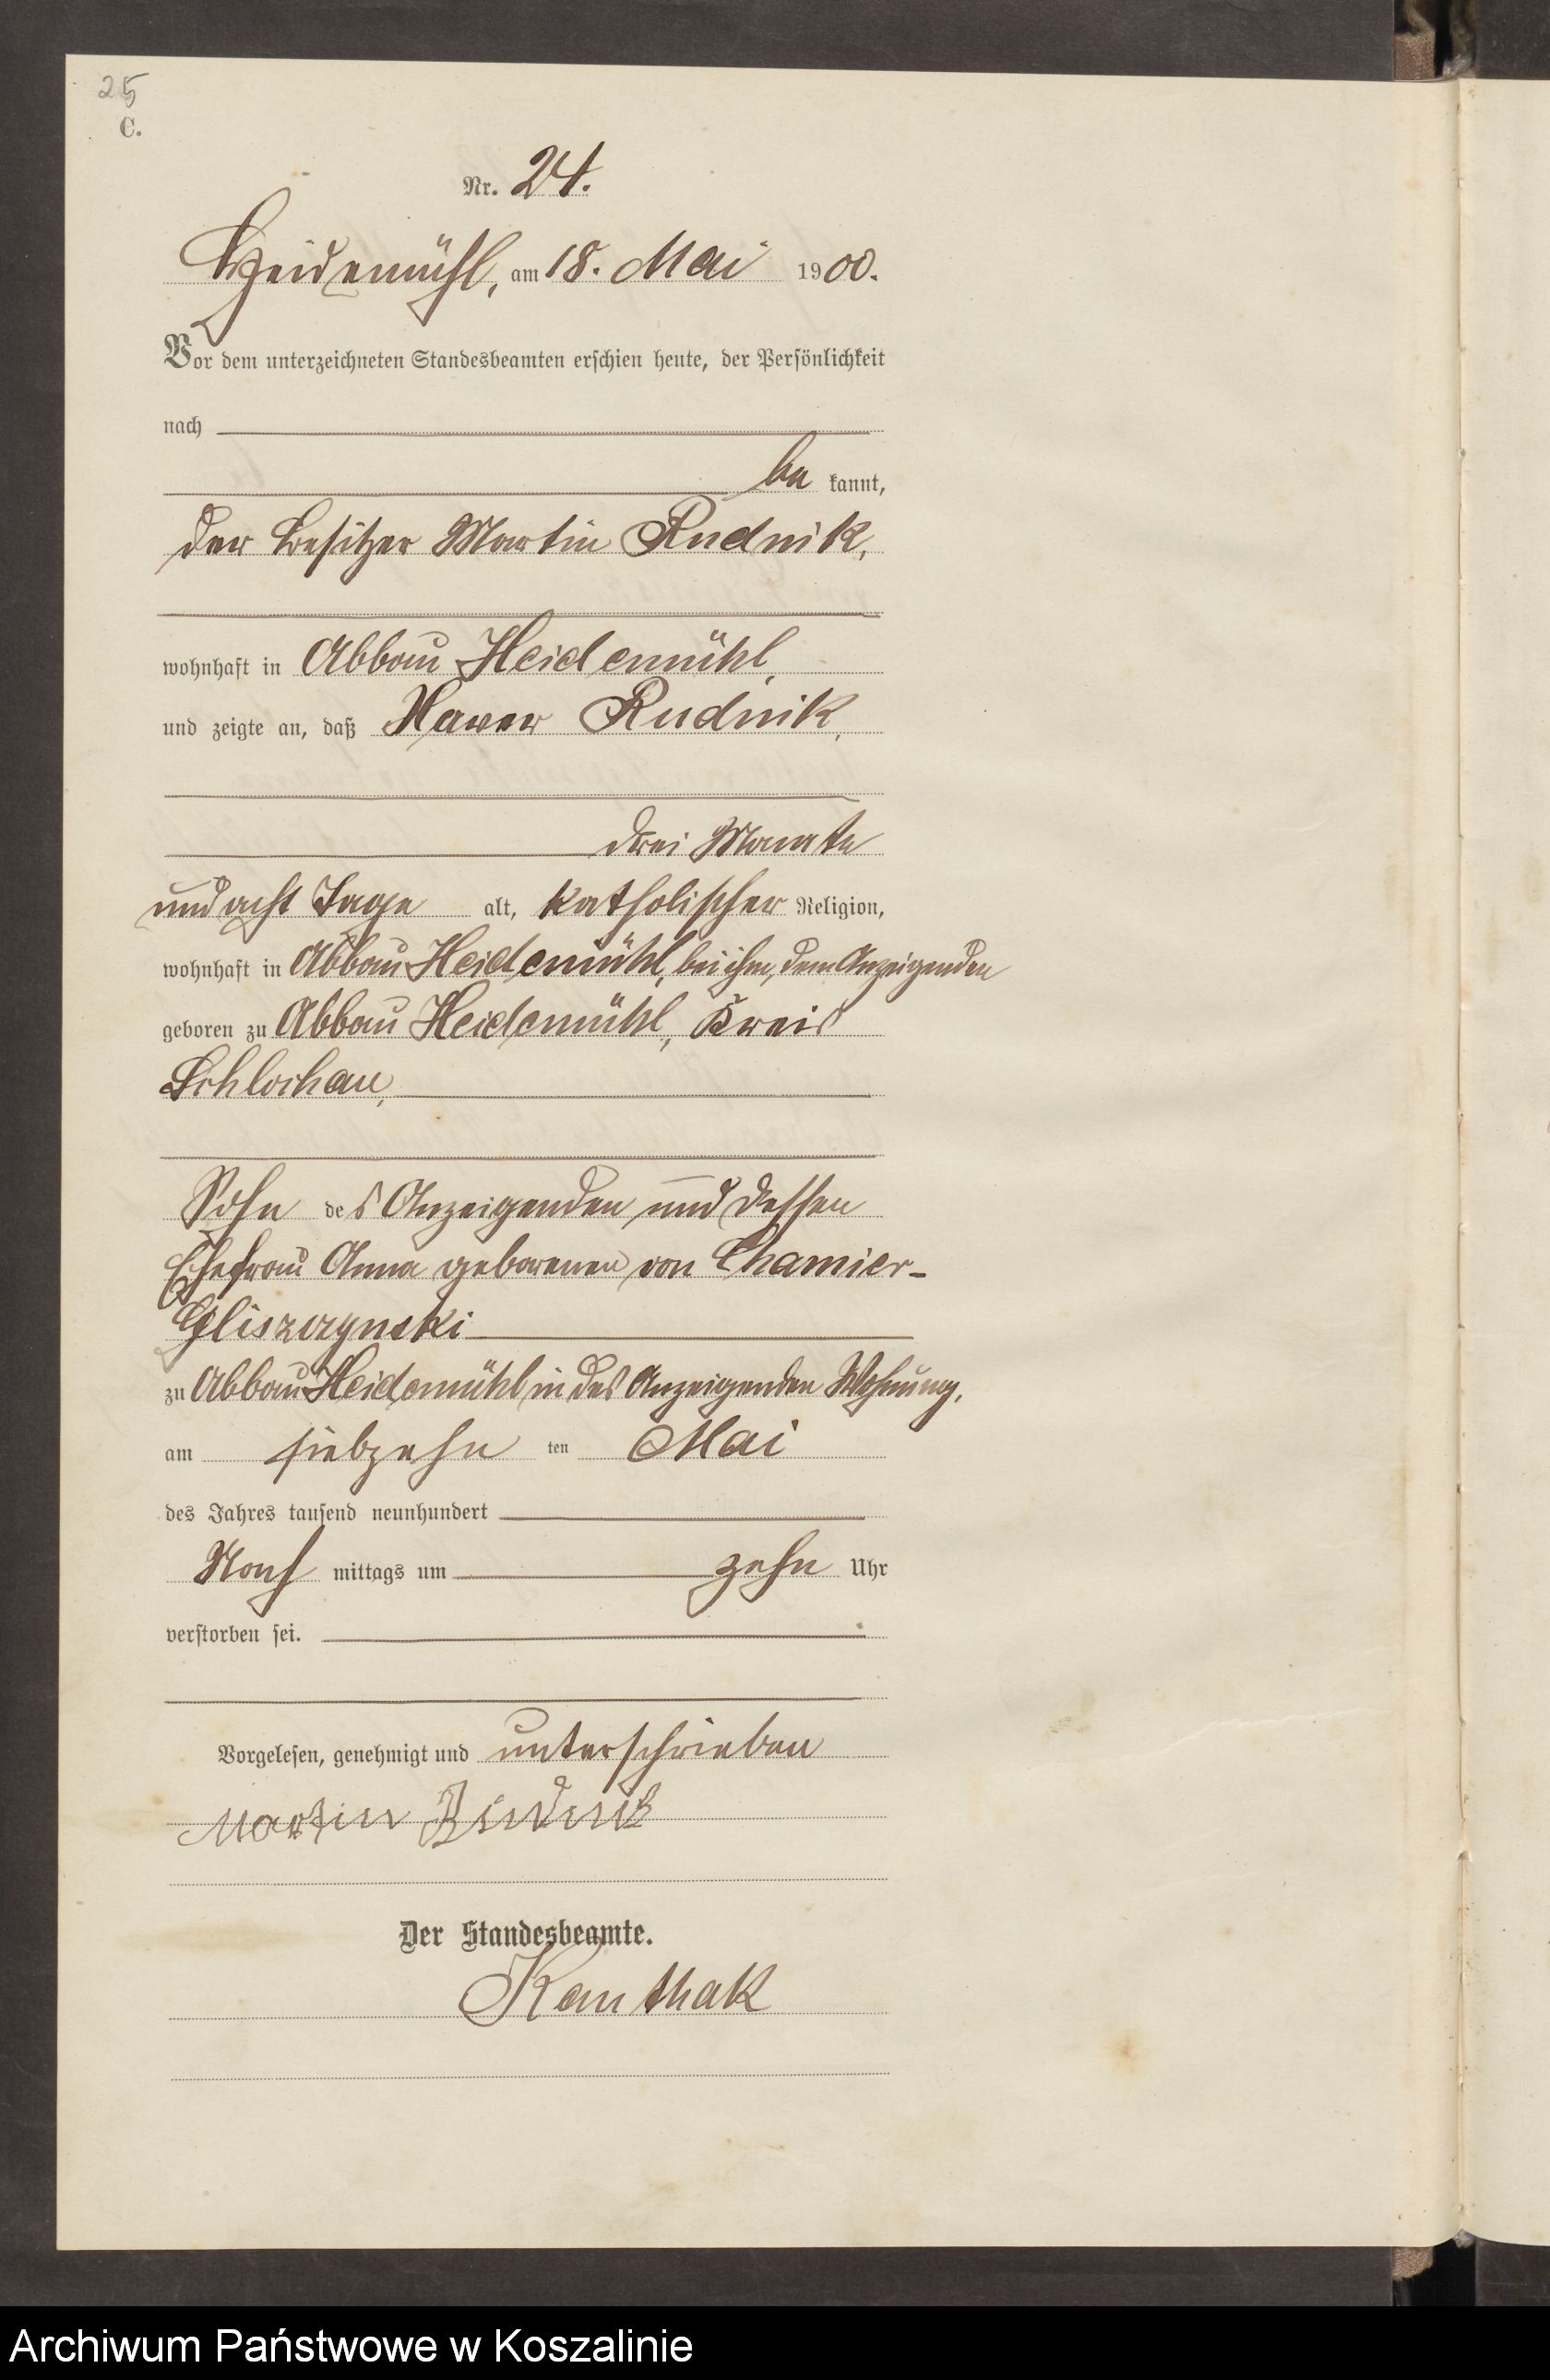 25
C.
Nr. 24.
Heidemühl, am 18. Mai 1900.
Vor dem unterzeichneten Standesbeamten erschien heute, der Persönlichkeit
nach
be kannt,
der Besitzer Martin Rudnik,
wohnhaft in Abbau Heidemühl,
und zeigte an, daß Xaver Rudnik,
drei Monate
und acht Tage alt, katholischer Religion,
wohnhaft in Abbau Heidemühl, bei ihm, dem Anzeigenden
geboren zu Abbau Heidemühl, Kreis
Schlochau,
Sohn des Anzeigenden und dessen
Ehefrau Anna geborenen von Chamier-
Gliszczynski
zu Abbau Heidemühl in des Anzeigenden Wohnung,
am siebzehn ten Mai
des Jahres tausend neunhundert
Nach mittags um zehn Uhr
verstorben sei.
Vorgelesen, genehmigt und unterschrieben
Martin Rudnik
Der Standesbeamte.
Kauthak
Archiwum Państwowe w Koszalinie